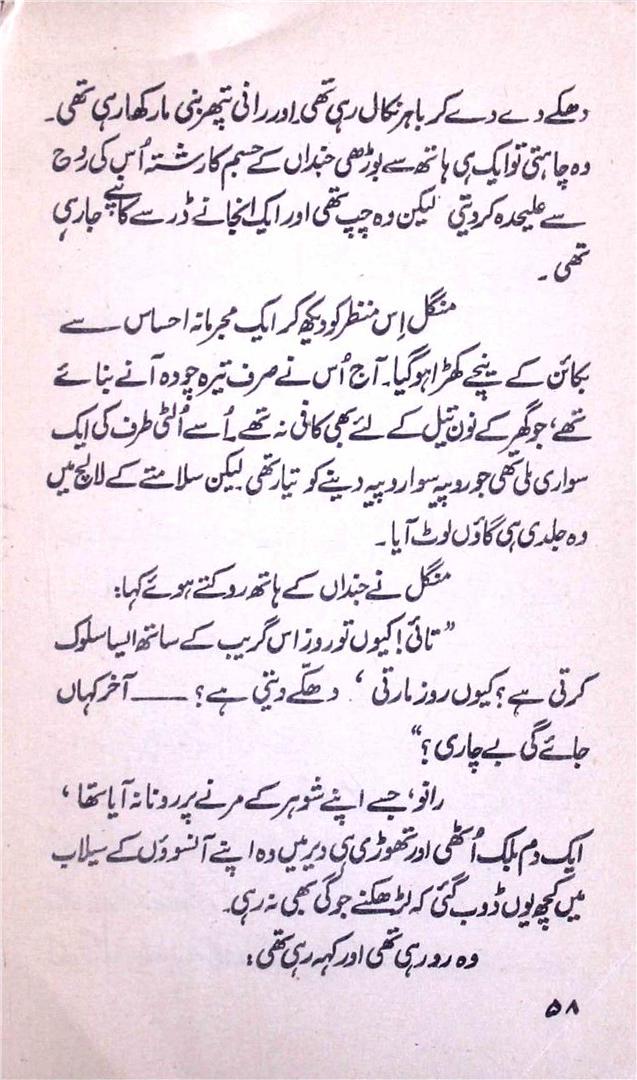 دھکے دے دے کر باہر نکال رہی تھی اور رانی پتھر بنی مار کھا رہی تھی۔
وہ چاہتی تو ایک ہی ہاتھ سے بوڑھی جنداں کے جسم کا رشتہ اُس کی روح
سے علیحدہ کر دیتی لیکن وہ چپ تھی اور ایک انجانے ڈر سے کانپے جا رہی
تھی۔
منگل اِس منظر کو دیکھ کر ایک مجرمانہ احساس سے
بکائن کے نیچے کھڑا ہو گیا۔ آج اُس نے صرف تیرہ چودہ آنے بنائے
تھے، جو گھر کے نون تیل کے لئے بھی کافی نہ تھے۔ اُسے اُلٹی طرف کی ایک
سواری ملی تھی جو روپیہ سوا روپیہ دینے کو تیار تھی لیکن سلامتے کے لالچ میں
وہ جلدی ہی گاؤں لوٹ آیا۔
منگل نے جنداں کے ہاتھ روکتے ہوئے کہا:
”تائی! کیوں تو روز اس گریب کے ساتھ ایسا سلوک
کرتی ہے؟ کیوں روز مارتی، دھکّے دیتی ہے؟ —— آخر کہاں
جائے گی بے چاری؟“
رانو، جسے اپنے شوہر کے مرنے پر رونا نہ آیا تھا،
ایک دم بلک اُٹھی اور تھوڑی ہی دیر میں وہ اپنے آنسوؤں کے سیلاب
میں کچھ یوں ڈوب گئی کہ لڑھکنے جوگی بھی نہ رہی۔
وہ رو رہی تھی اور کہہ رہی تھی:
۵۸